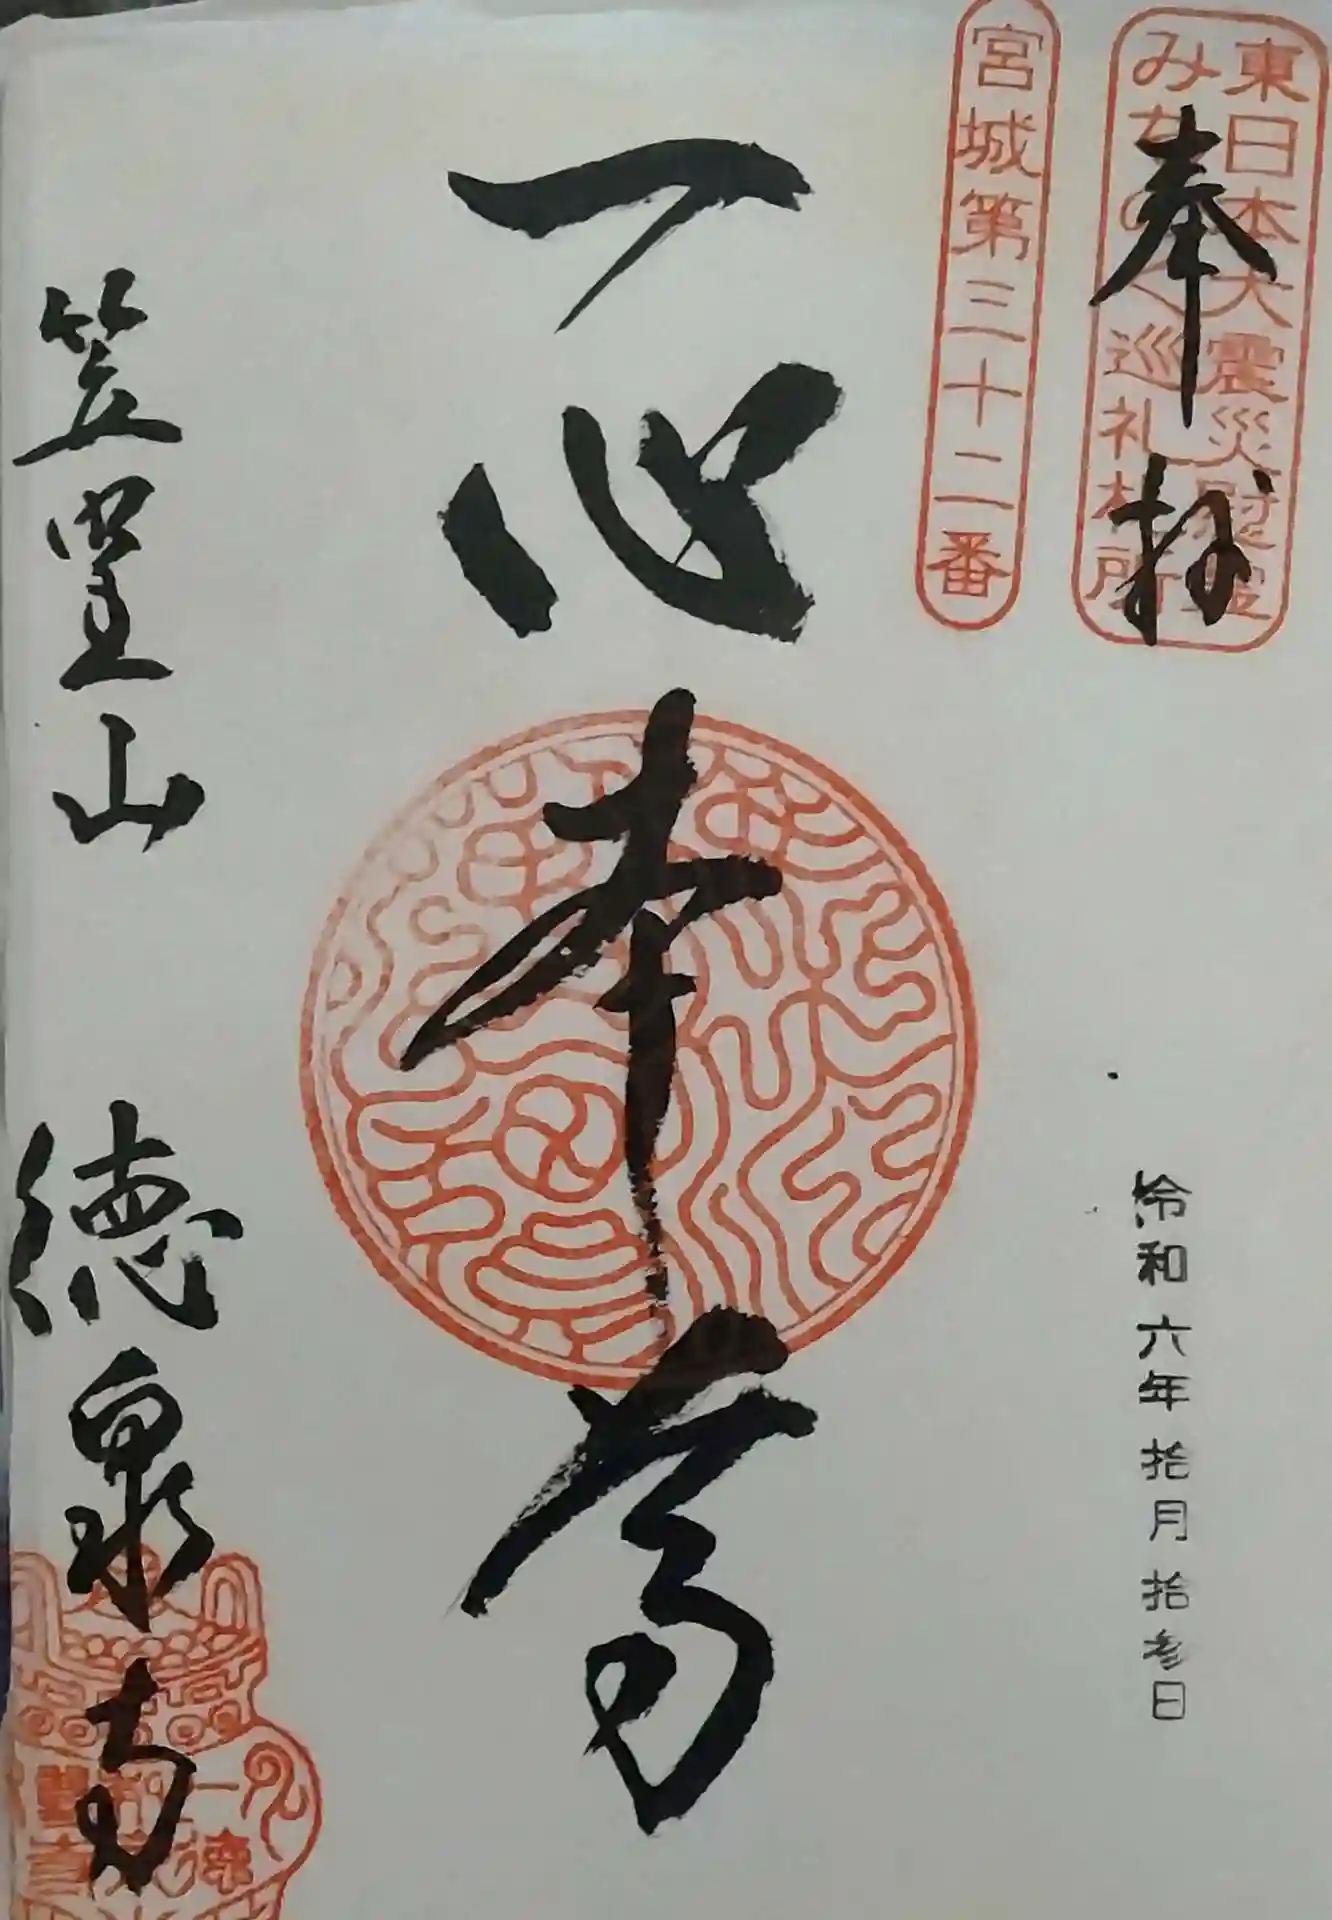 東日本大震災慰霊
みちのく巡礼札所
奉拝
宮城第三十二番
令和六年拾月拾参日
一心本尊
笠峯山
徳泉寺